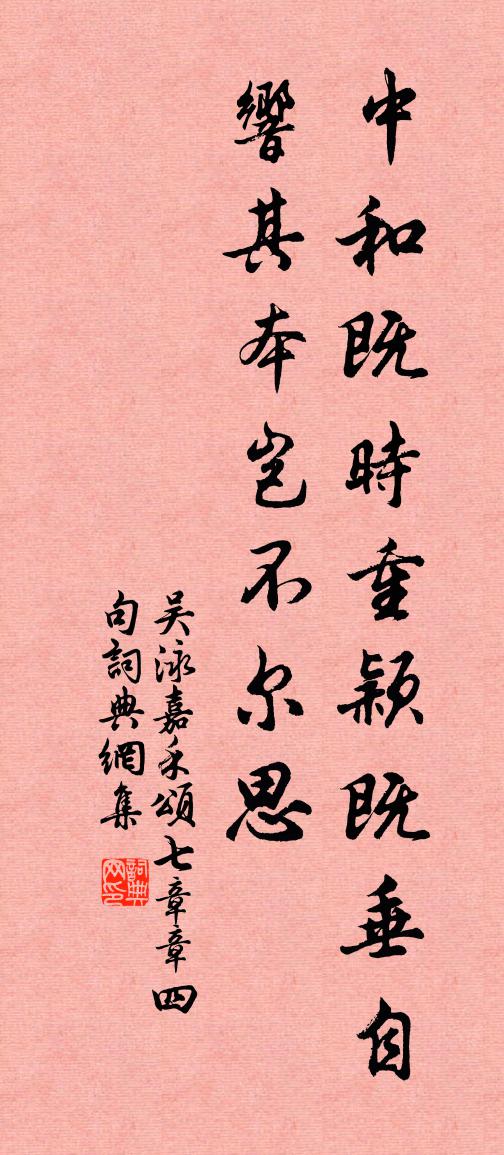 中和既時重穎既垂自
響其本岂不尔思
吴泳嘉禾頌七章章四
句詞典網集
詞典
网印